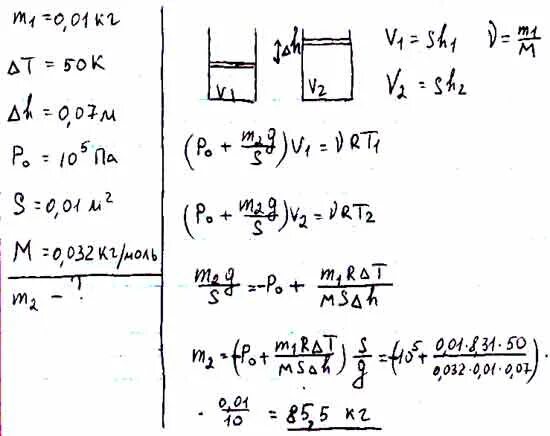 m₁ = 0,01 кг
ΔT = 50 К
Δh = 0,07 м
P₀ = 10⁵ Па
S = 0,01 м²
M = 0,032 кг/моль
m₂ - ?
Δh
V₁
V₂
V₁ = Sh₁ ν = m₁/M
V₂ = Sh₂
(P₀ + m₂g/S) V₁ = νRT₁
(P₀ + m₂g/S) V₂ = νRT₂
m₂g/S = -P₀ + m₁RΔT/MSΔh
m₂ = (-P₀ + m₁RΔT/MSΔh) S/g = (-10⁵ + 0,01·8,31·50/0,032·0,01·0,07) ·
· 0,01/10 = 85,5 кг